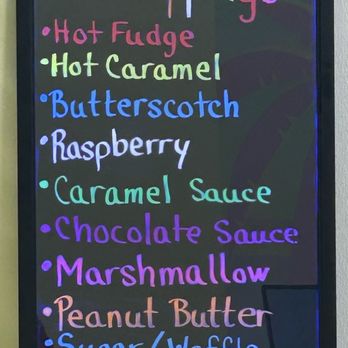 •Hot Fudge
•Hot Caramel
•Butterscotch
•Raspberry
•Caramel Sauce
•Chocolate Sauce
•Marshmallow
•Peanut Butter